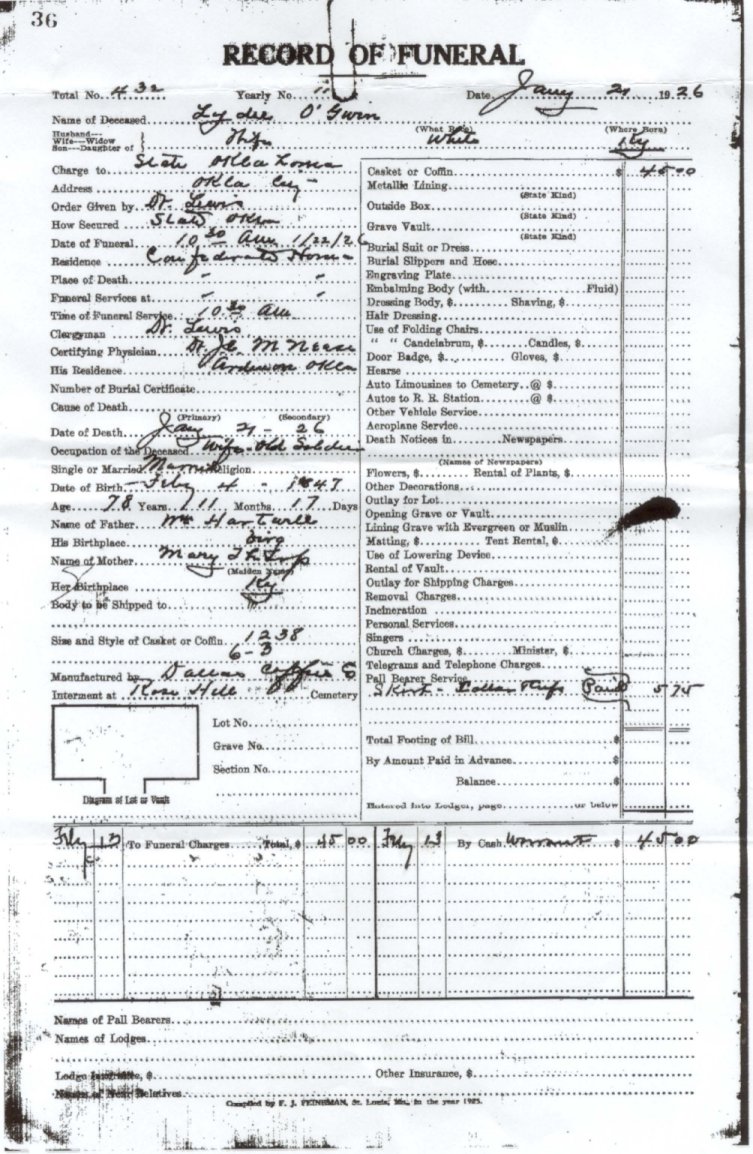 36
RECORD OF FUNERAL
Total No. 432 Yearly No. 11 Date Jany 21 1926
Name of Deceased Lydee O'Gwin
Husband—
Wife—Widow
Son—Daughter of Wife (What Race) White (Where Born) Ky
Charge to State Oklahoma
Address Okla City
Order Given by Dr. Lewis
How Secured State Okla
Date of Funeral 10 30 Am 1/22/26
Residence Confederate Home
Place of Death " "
Funeral Services at " "
Time of Funeral Service 10 30 Am
Clergyman Dr. Lewis
Certifying Physician Dr. McNeese
His Residence Ardmore Okla
Number of Burial Certificate
Cause of Death
(Primary) (Secondary)
Date of Death Jany 21 - 26
Occupation of the Deceased Wife - Old Soldier
Single or Married Married Religion
Date of Birth Feby 4 - 1847
Age 78 Years 11 Months 17 Days
Name of Father Wm
His Birthplace Virg
Name of Mother Mary
(Maiden Name)
Her Birthplace Ky
Body to be Shipped to
Size and Style of Casket or Coffin 1238
6-3
Manufactured by Dallas Coffin Co
Interment at Rose Hill Cemetery
Lot No.
Grave No.
Section No.
Diagram of Lot or Vault
Casket or Coffin $ 45 00
Metallic Lining
(State Kind)
Outside Box
(State Kind)
Grave Vault
(State Kind)
Burial Suit or Dress
Burial Slippers and Hose
Engraving Plate
Embalming Body (with Fluid)
Dressing Body, $ Shaving, $
Hair Dressing
Use of Folding Chairs
" " Candelabrum, $ Candles, $
Door Badge, $ Gloves, $
Hearse
Auto Limousines to Cemetery @ $
Autos to R. R. Station @ $
Other Vehicle Service
Aeroplane Service
Death Notices in Newspapers
(Names of Newspapers)
Flowers, $ Rental of Plants, $
Other Decorations
Outlay for Lot
Opening Grave or Vault
Lining Grave with Evergreen or Muslin
Matting, $ Tent Rental, $
Use of Lowering Device
Rental of Vault
Outlay for Shipping Charges
Removal Charges
Incineration
Personal Services
Singers
Church Charges, $ Minister, $
Telegrams and Telephone Charges
Pall Bearer Service
Skirt - Collar Paid 5 75
Total Footing of Bill $
By Amount Paid in Advance $
Balance $
Entered into Ledger, page or below
Feby 13 To Funeral Charges Total, $ 45 00 Feby 13 By Cash Warrant $ 45 00
Names of Pall Bearers
Names of Lodges
Lodge Insurance, $ Other Insurance, $
Names of Near Relatives
Compiled by F. J. FEINEMAN, St. Louis, Mo., in the year 1925.